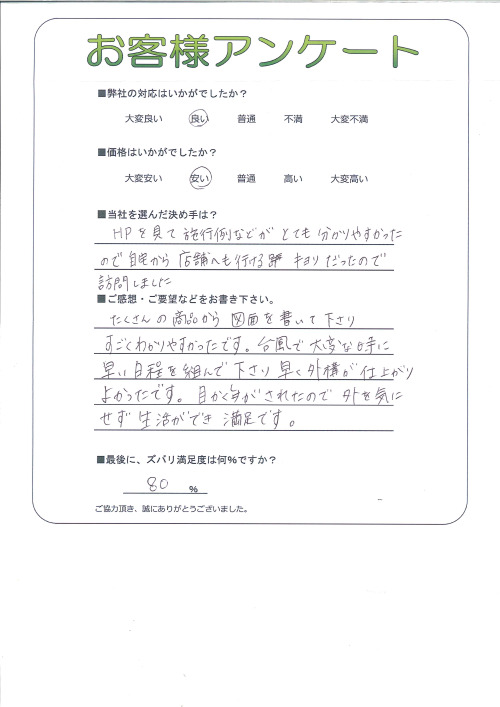 お客様アンケート
■弊社の対応はいかがでしたか？
大変良い 良い 普通 不満 大変不満
■価格はいかがでしたか？
大変安い 安い 普通 高い 大変高い
■当社を選んだ決め手は？
HPを見て施行例などが とても 分かりやすかった
ので 自宅から 店舗へも行ける キョリ だったので
訪問しました
■ご感想・ご要望などをお書き下さい。
たくさんの商品から 図面を書いて下さり
すごくわかりやすかったです。台風で大変な時に
早い日程を組んで下さり 早く外構が仕上がり
よかったです。目かくしがされたので 外を気に
せず 生活ができ 満足です。
■最後に、ズバリ満足度は何%ですか？
80 %
ご協力頂き、誠にありがとうございました。